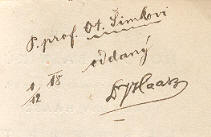 P. prof. Ot. Šimkovi
oddaný
1/12 18
Dr Haas